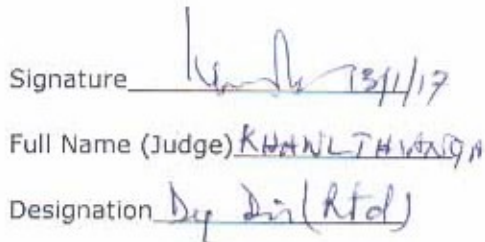 Signature 13/1/17
Full Name (Judge) KHAWLTHIANGA
Designation Dy Dir (Rtd)